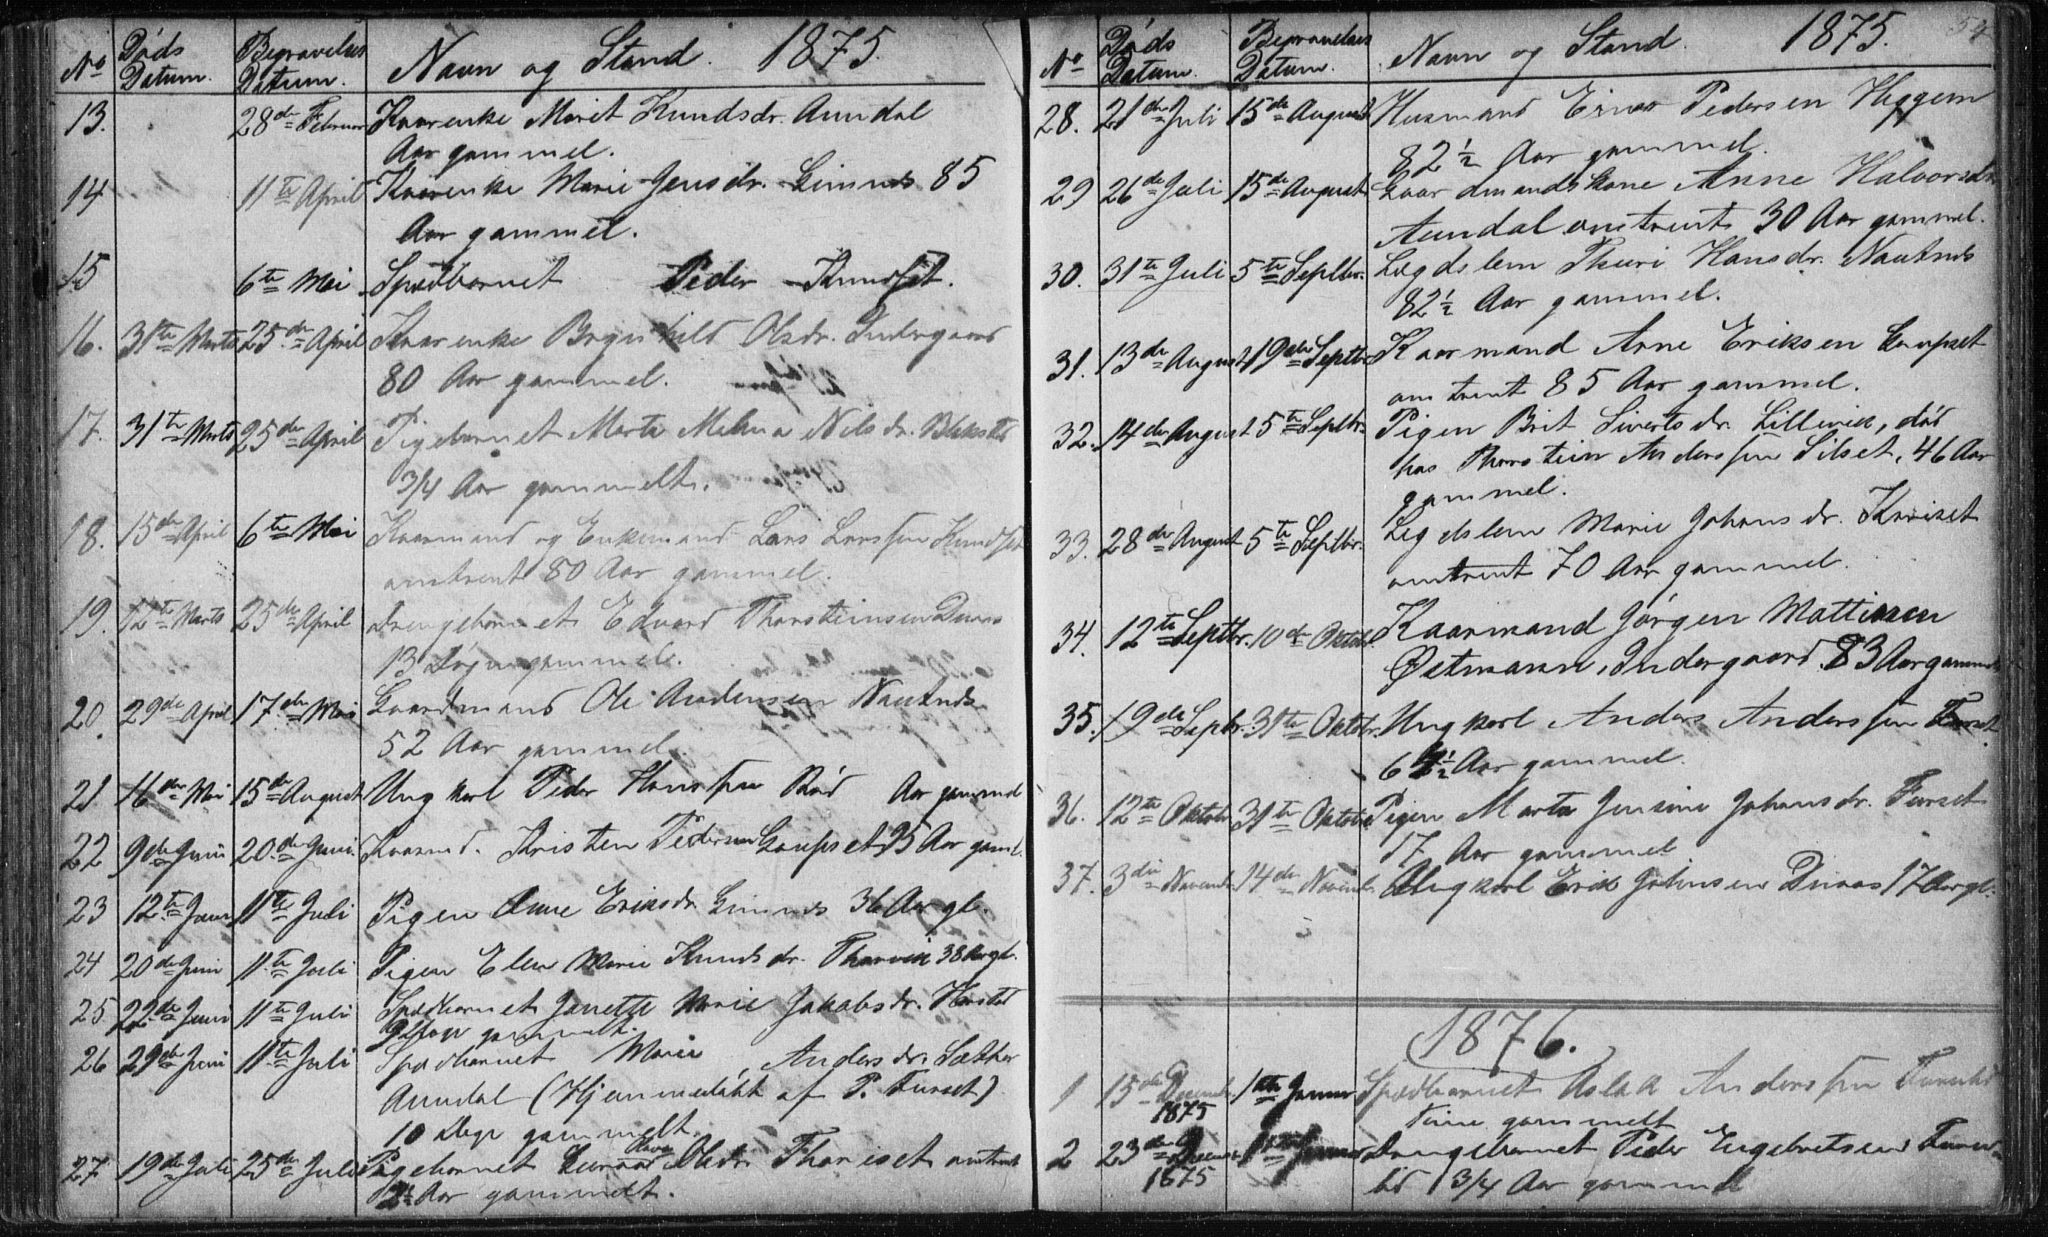 No Døds Datum. Begravelses Datum. Navn og Stand. 1875.
13. 28de Februar Kaarenke Marit Knudsdr. Aundal
Aar gammel.
14 11te April Kaarenke Marie Jensdr. Gimnes 85
Aar gammel.
15 6te Mai Spædbarnet Peder Knudset.
16. 31te Marts 25de April Kaarenke Brynhild Olsdr. Indergaard
80 Aar gammel.
17. 31te Marts 25de April Pigebarnet Marta Nilsdr.
3/4 Aar gammelt.
18. 15de April 6te Mai Kaarmand og Enkemand Lars Larssen
omtrent 80 Aar gammel.
19. 12te Marts 25de April Drengebarnet Edvard Thorsteinsen
13 Døgn gammel.
20. 29de April 17de Mai Gaardmand Ole
52 Aar gammel.
21 16de Mai 15de August Ungkarl Peder Hanssen Rød Aar gammel
22 9de Juni 20de Juni Kaarmd. Kristen Pedersen Gaupset 95 Aar gaml.
23 12te Juni 11te Juli Pigen Anne Eriksdr. Gimnes 36 Aar gl.
24 20de Juni 11te Juli Pigen Elen Marie Knudsdr. Thorvik 38 Aar gl.
25 22de Juni 11te Juli Spædbarnet Marie Jakobsdr. Harstad
gammelt.
26 29de Juni 11te Juli Spædbarnet Marie, Andersdr. Sæther
Aundal (Hjemmedøbt af P. Furset)
10 Dage gammelt.
27. 19de Juli 25de Juli Pigebarnet Olsdr. omtrent
2½ Aar gammelt.
No Døds Datum. Begravelses Datum. Navn og Stand. 1875. 54
28. 21de Juli 15de August Husmand Einar Pedersen Heggem
82½ Aar gammel.
29 26de Juli 15de August Gaardmandskone Anne Halvorsdr.
Aundal omtrent 30 Aar gammel.
30. 31te Juli 5te Septbr. Lægdslem Thuri Hansdr.
82½ Aar gammel.
31. 13de August 19de Septbr. Kaarmand Arne Eriksen Gaupset
omtrent 85 Aar gammel.
32. 14de August 5te Septbr. Pigen Brit Sivertsdr. Lillevik, død
hos Thorstein Anderssen Silset, 46 Aar
gammel.
33. 28de August 5te Septbr. Legdslem Marie Johansdr.
omtrent 70 Aar gammel.
34. 12te Septbr. 10de Oktobr. Kaarmand Jørgen Mattissen
Østmann, Indergaard 83 Aar gammel
35. 19de Septbr. 31te Oktobr. Ungkarl Anders Anderssen Furset
Aar gammel.
36. 12te Oktobr. 31te Oktobr. Pigen Marta Jensine Johansdr. Furset
17 Aar gammel
37. 3die Novembr. 14de Novembr. Ungkarl Erik Johnsen 17 Aar gl.
1876.
1 15de Decembr. 1ste Januar Spædbarnet Aslak Anderssen
1875 Time gammelt
2 23de Decembr. 1ste Januar Drengebarnet Peder Engebretsen
1875 1 3/4 Aar gammel